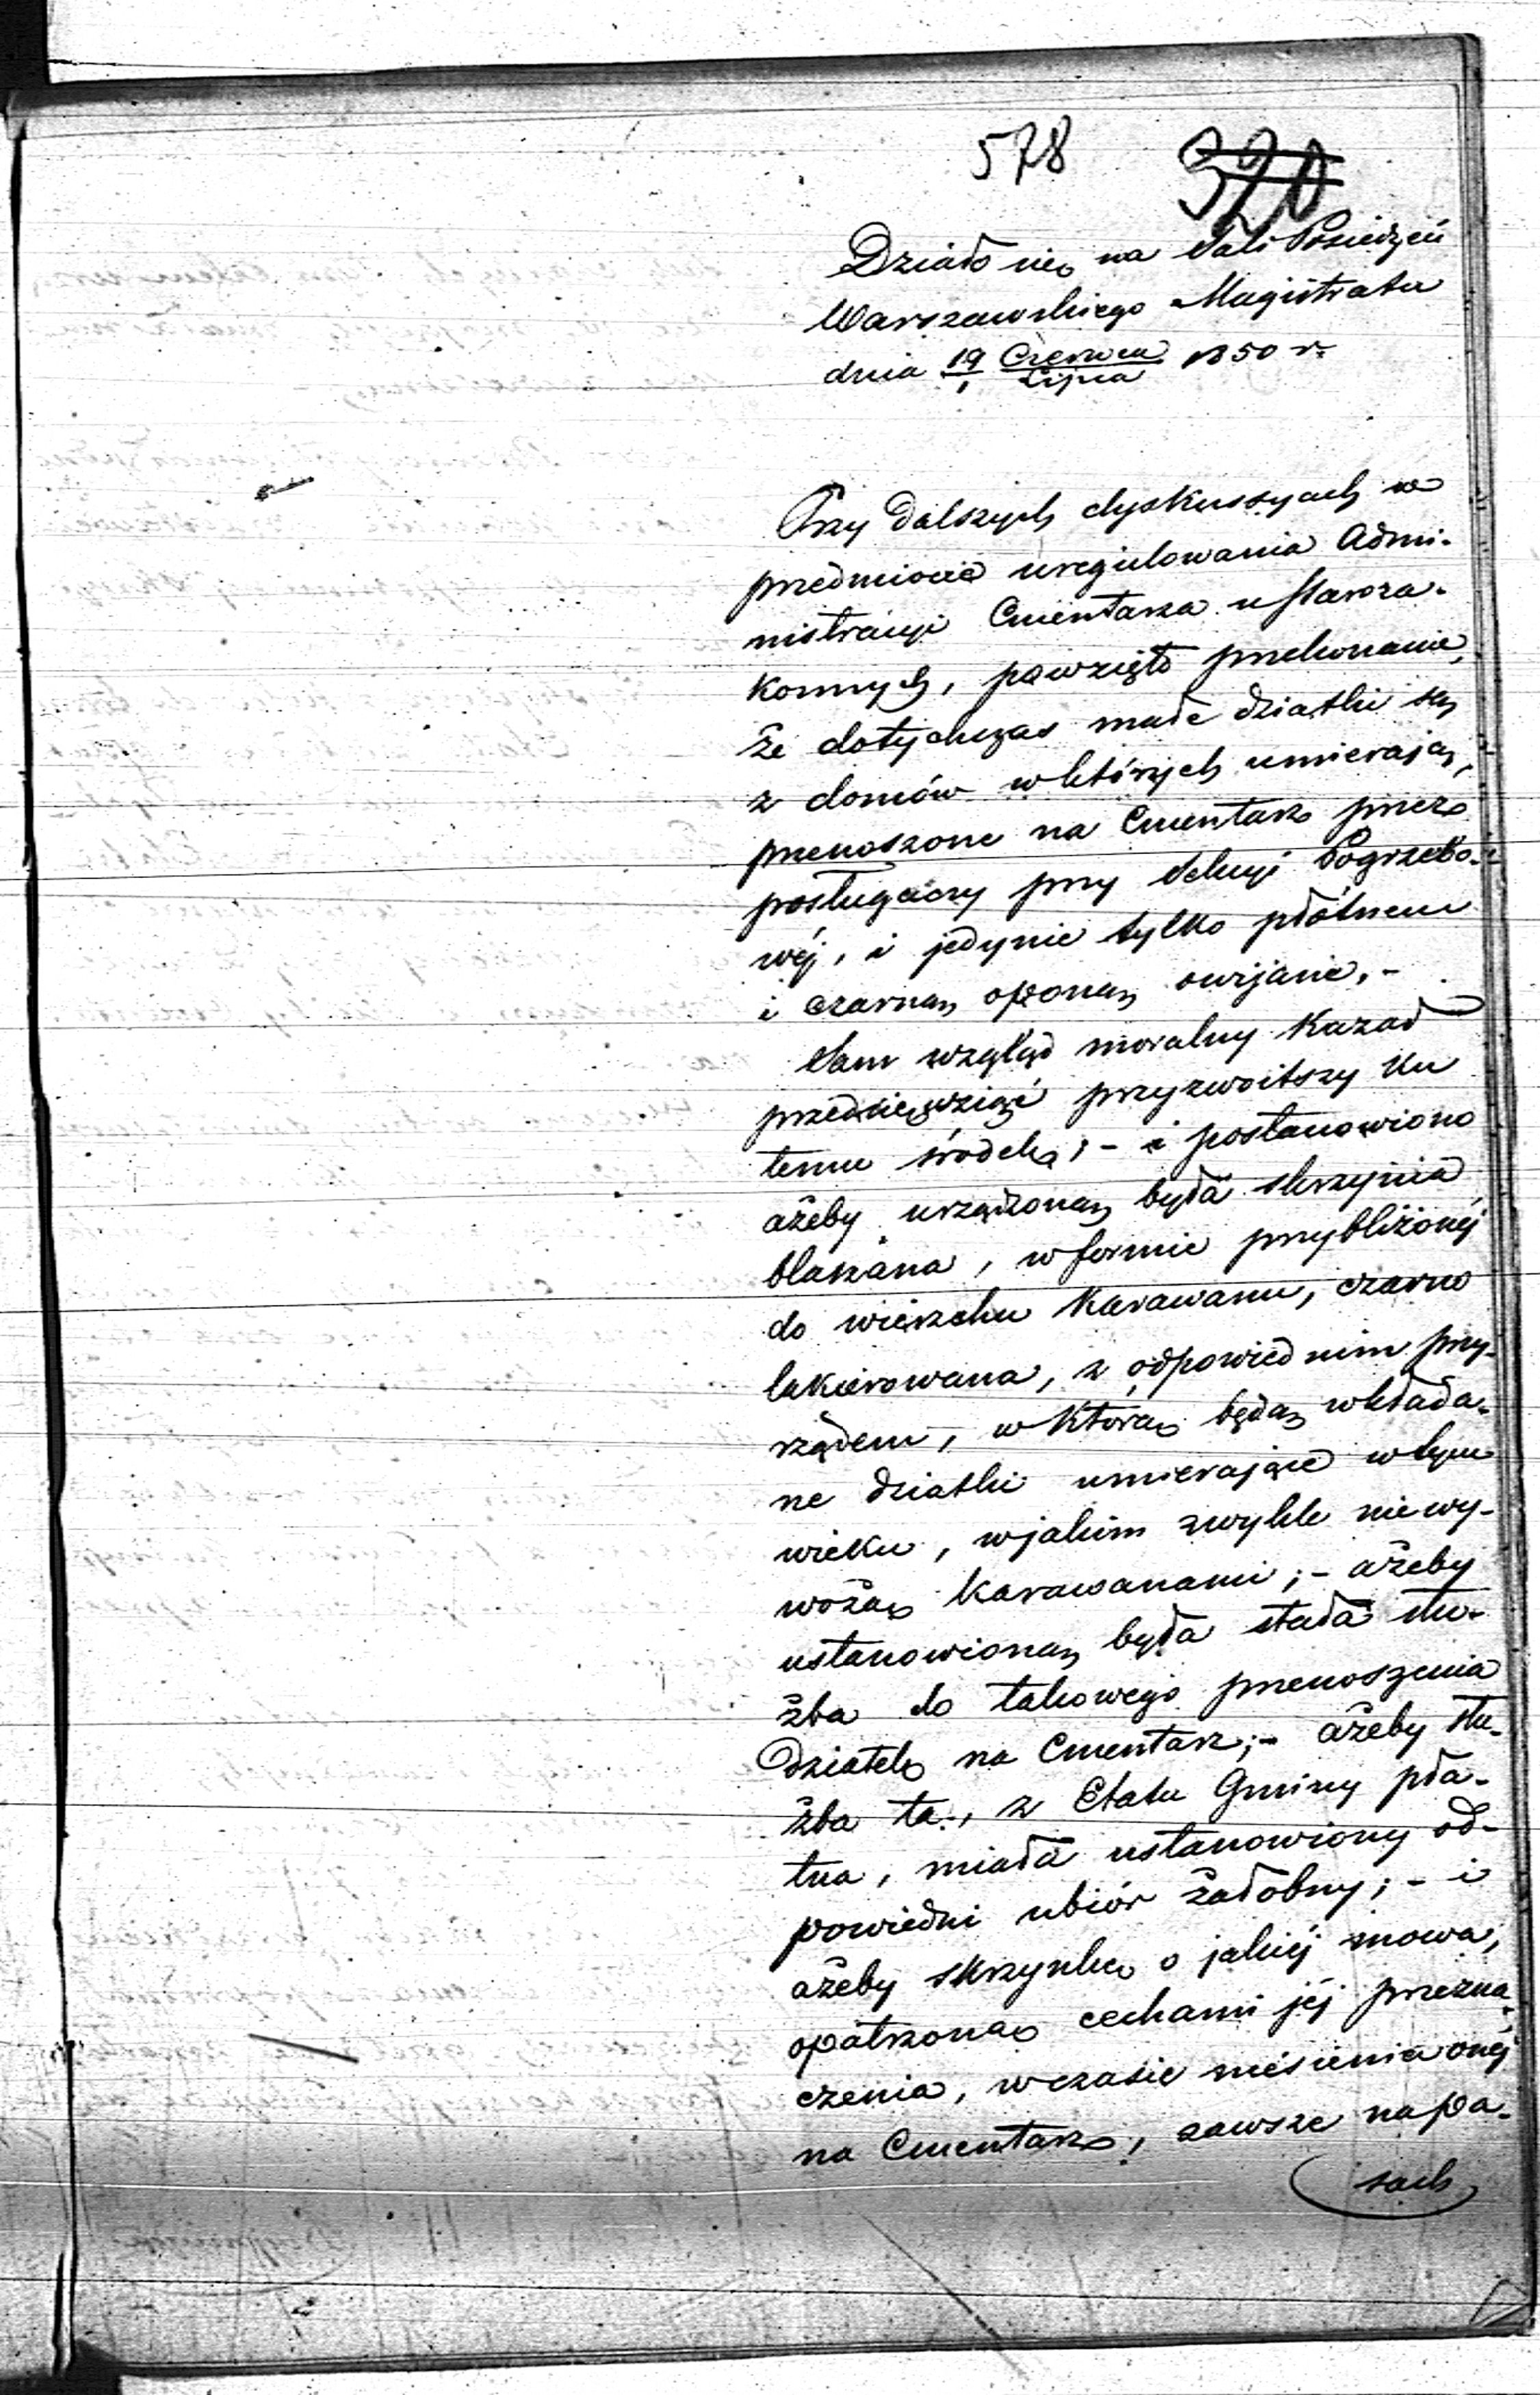 578 320
Działo się na Sali Posiedzeń
Warszawskiego Magistratu
dnia 19/1 Czerwca/Lipca 1850 r.
Przy dalszych dyskussyach w
przedmiocie uregulowania Admi-
nistracyi Cmentarza u Staroza-
konnych, powzięto przekonanie,
że dotychczas małe dziatki są
z domów w których umierają,
przenoszone na Cmentarz przez
posługaczy przy sekcyi Pogrzebo-
wéj, i jedynie tylko płótnem
i czarną oponą owijane, -
Sam wzgląd moralny kazał
przedsięwziąć przyzwoitszy ku
temu środek; - i postanowiono
ażeby urządzoną była skrzynia
blaszana, w formie przybliżonéj
do wierzchu Karawanu, czarno
lakierowana, z odpowiednim przy-
rządem, w którą będą wkłada-
ne dziatki umierające w tym
wieku, w jakim zwykle nie wy-
wożą karawanami; - ażeby
ustanowioną była stała słu-
żba do takowego przenoszenia
dziatek na Cmentarz; - ażeby słu-
żba ta, z Etatu Gminy pła-
tna, miała ustanowiony od-
powiedni ubiór żałobny; - i
ażeby skrzynkę o jakiéj mowa,
opatrzoną cechami jéj przezna-
czenia, w czasie niesienia onéj
na Cmentarz, zawsze na pa-
sach